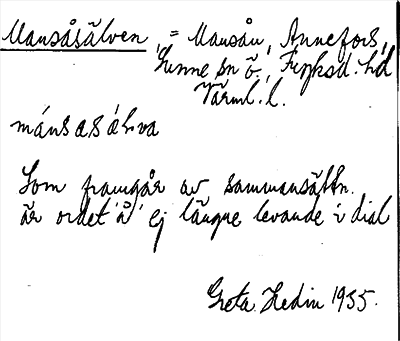 Mansåsälven, = Mansån, Annefors,
Sunne sn ö. Fryksd. hd
Värml. l.
mánsasálva
Som framgår av sammansättn.
är ordet 'å' ej längre levande i dial
Greta Hedin 1935.